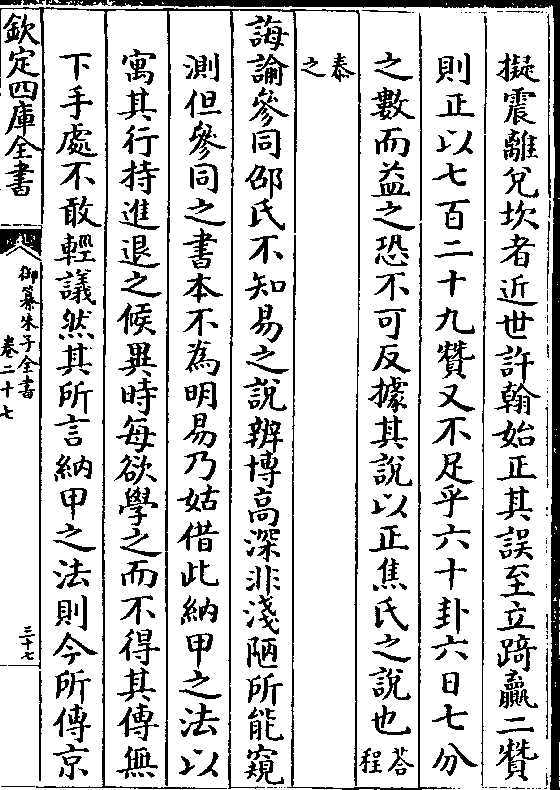 擬震離兌坎者近世許翰始正其誤至立踦贏二贊
則正以七百二十九贊又不足乎六十卦六日七分
之數而益之恐不可反據其說以正焦氏之說也答程
泰之
誨論參同邵氏不知易之說辨博高深非淺陋所能窺
測但參同之書本不為明易乃姑借此納甲之法以
寓其行持進退之候異時每欲學之而不得其傳無
下手處不敢輕議然其所言納甲之法則今所傳京
欽定四庫全書
御纂朱子全書
卷二十七
三十七